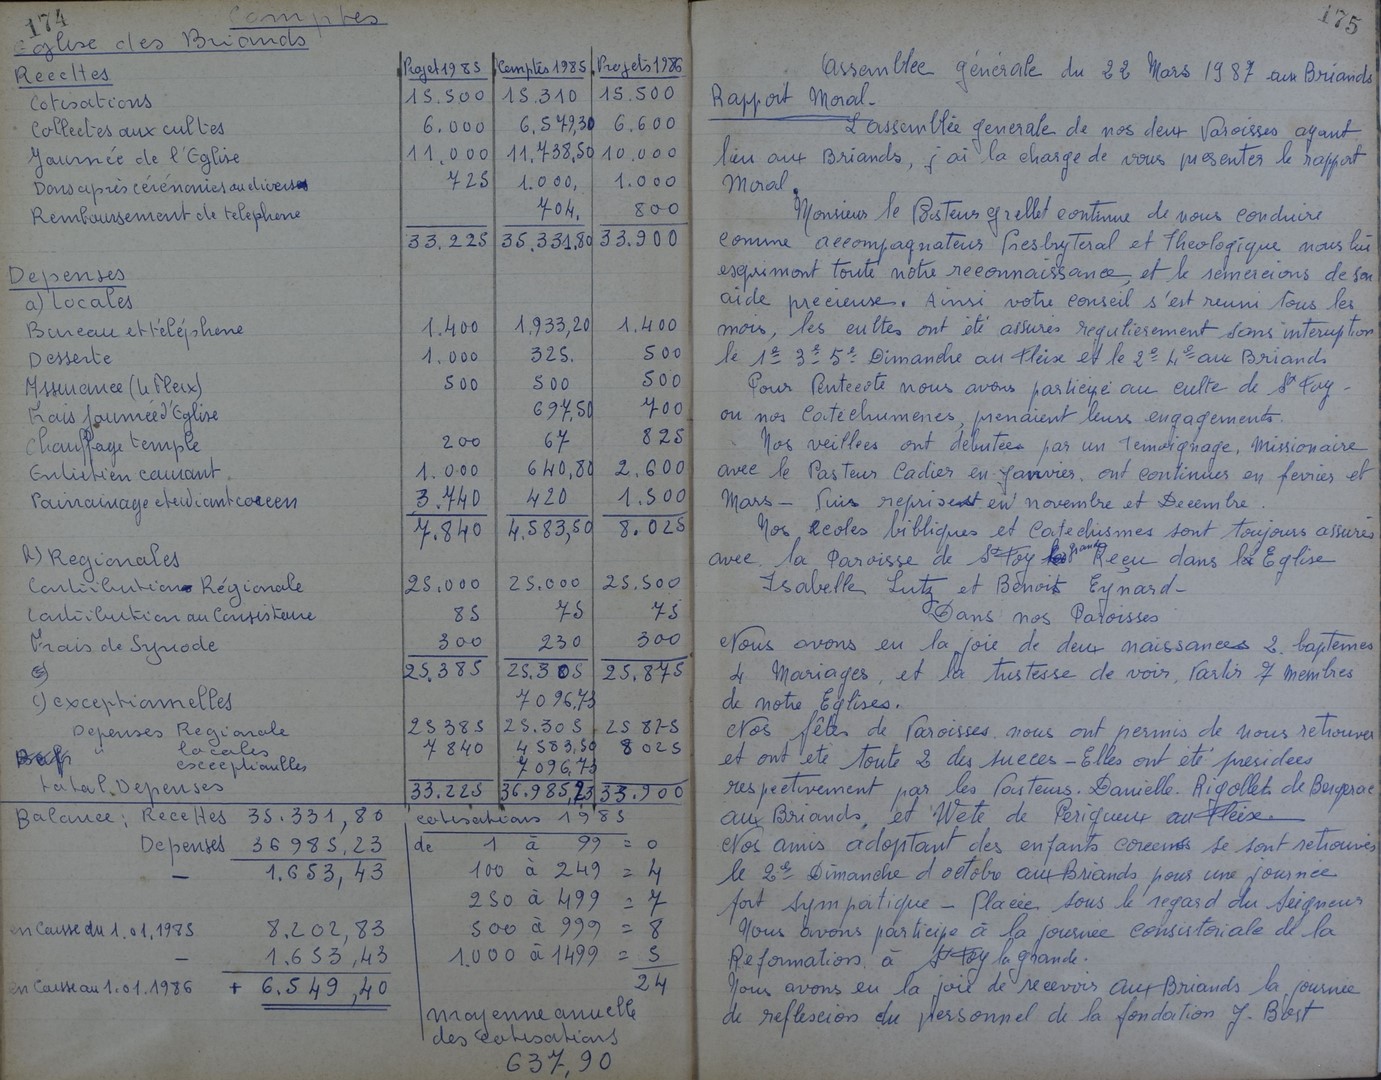 174
Comptes
Eglise des Briands
Recettes Projet 1985 Comptes 1985 Projets 1986
Cotisations 15.500 15.310 15.500
Collectes aux cultes 6.000 6.579,30 6.600
Journée de l'Eglise 11.000 11.738,50 10.000
Dons après cérémonies ou divers 725 1.000, 1.000
Remboursement de telephone 704. 800
33.225 35.331,80 33.900
Depenses
a) Locales
Bureau et téléphone 1.400 1.933,20 1.400
Desserte 1.000 325. 500
Assurance (le Fleix) 500 500 500
Frais Journée d'Eglise 697,50 700
Chauffage temple 200 67 825
Entretien courant 1.000 640,80 2.600
Parrainage etudiant coreen 3.740 420 1.500
7.840 4.583,50 8.025
b) Regionales
Contribution Régionale 25.000 25.000 25.500
Contribution au Consistoire 85 75 75
Frais de Synode 300 230 300
25.385 25.305 25.875
c) exceptionnelles 7096,73
Depenses Regionale 25385 25.305 25875
" locales 7840 4583,50 8025
exceptionnelles 7096,73
total Depenses 33.225 36.985,23 33.900
Balance: Recettes 35.331,80
Depenses 36985,23
– 1.653,43
en Caisse du 1.01.1985 8.202,83
– 1.653,43
en Caisse au 1.01.1986 + 6.549,40
cotisations 1985
de 1 à 99 = 0
100 à 249 = 4
250 à 499 = 7
500 à 999 = 8
1.000 à 1499 = 5
24
moyenne annuelle
des cotisations
637,90
175
Assemblée générale du 22 Mars 1987 aux Briands
Rapport Moral-
L'assemblée generale de nos deux Paroisses ayant
lieu aux Briands, j'ai la charge de vous presenter le rapport
Moral.
Monsieur le Pasteur Grellet continue de nous conduire
comme accompagnateur Presbyteral et Theologique nous lui
exprimont toute notre reconnaissance, et le remercions de son
aide precieuse. Ainsi votre conseil s'est reuni tous les
mois, les cultes ont été assurés regulierement sans interuption
le 1er 3e 5e Dimanche au Fleix et le 2e 4e aux Briands
Pour Pentecote nous avons participé au culte de St Foy-
ou nos Catechumenes, prenaient leurs engagements.
Nos veillées ont debutées par un Temoignage, Missionaire
avec le Pasteur Cadier en Janvier, ont continues en fevrier et
Mars- Puis reprisent en novembre et Decembre.
Nos ecoles bibliques et Catechismes sont toujours assurés
avec la Paroisse de Ste Foy la grande Reçu dans la Eglise
Isabelle Lutz et Benoit Eynard-
Dans nos Paroisses
Nous avons eu la joie de deux naissances 2 baptemes
4 Mariages, et la tristesse de voir, Partir 7 membres
de notre Eglises.
Nos fêtes de Paroisses nous ont permis de nous retrouver
et ont été toute 2 des succes- Elles ont été presidées
respectivement par les Pasteurs. Danielle. Rigollet de Bergerac
aux Briands, et Wete de Perigueux au Fleix.
Nos amis adoptant des enfants coreens se sont retrouvés
le 2e Dimanche d octobre aux Briands pour une journée
fort sympatique- Placée sous le regard du Seigneur
Nous avons participe à la journée consistoriale de la
Reformation à St Foy la grande.
Nous avons eu la joie de recevoir aux Briands la journée
de reflexion du personnel de la fondation J. Bost